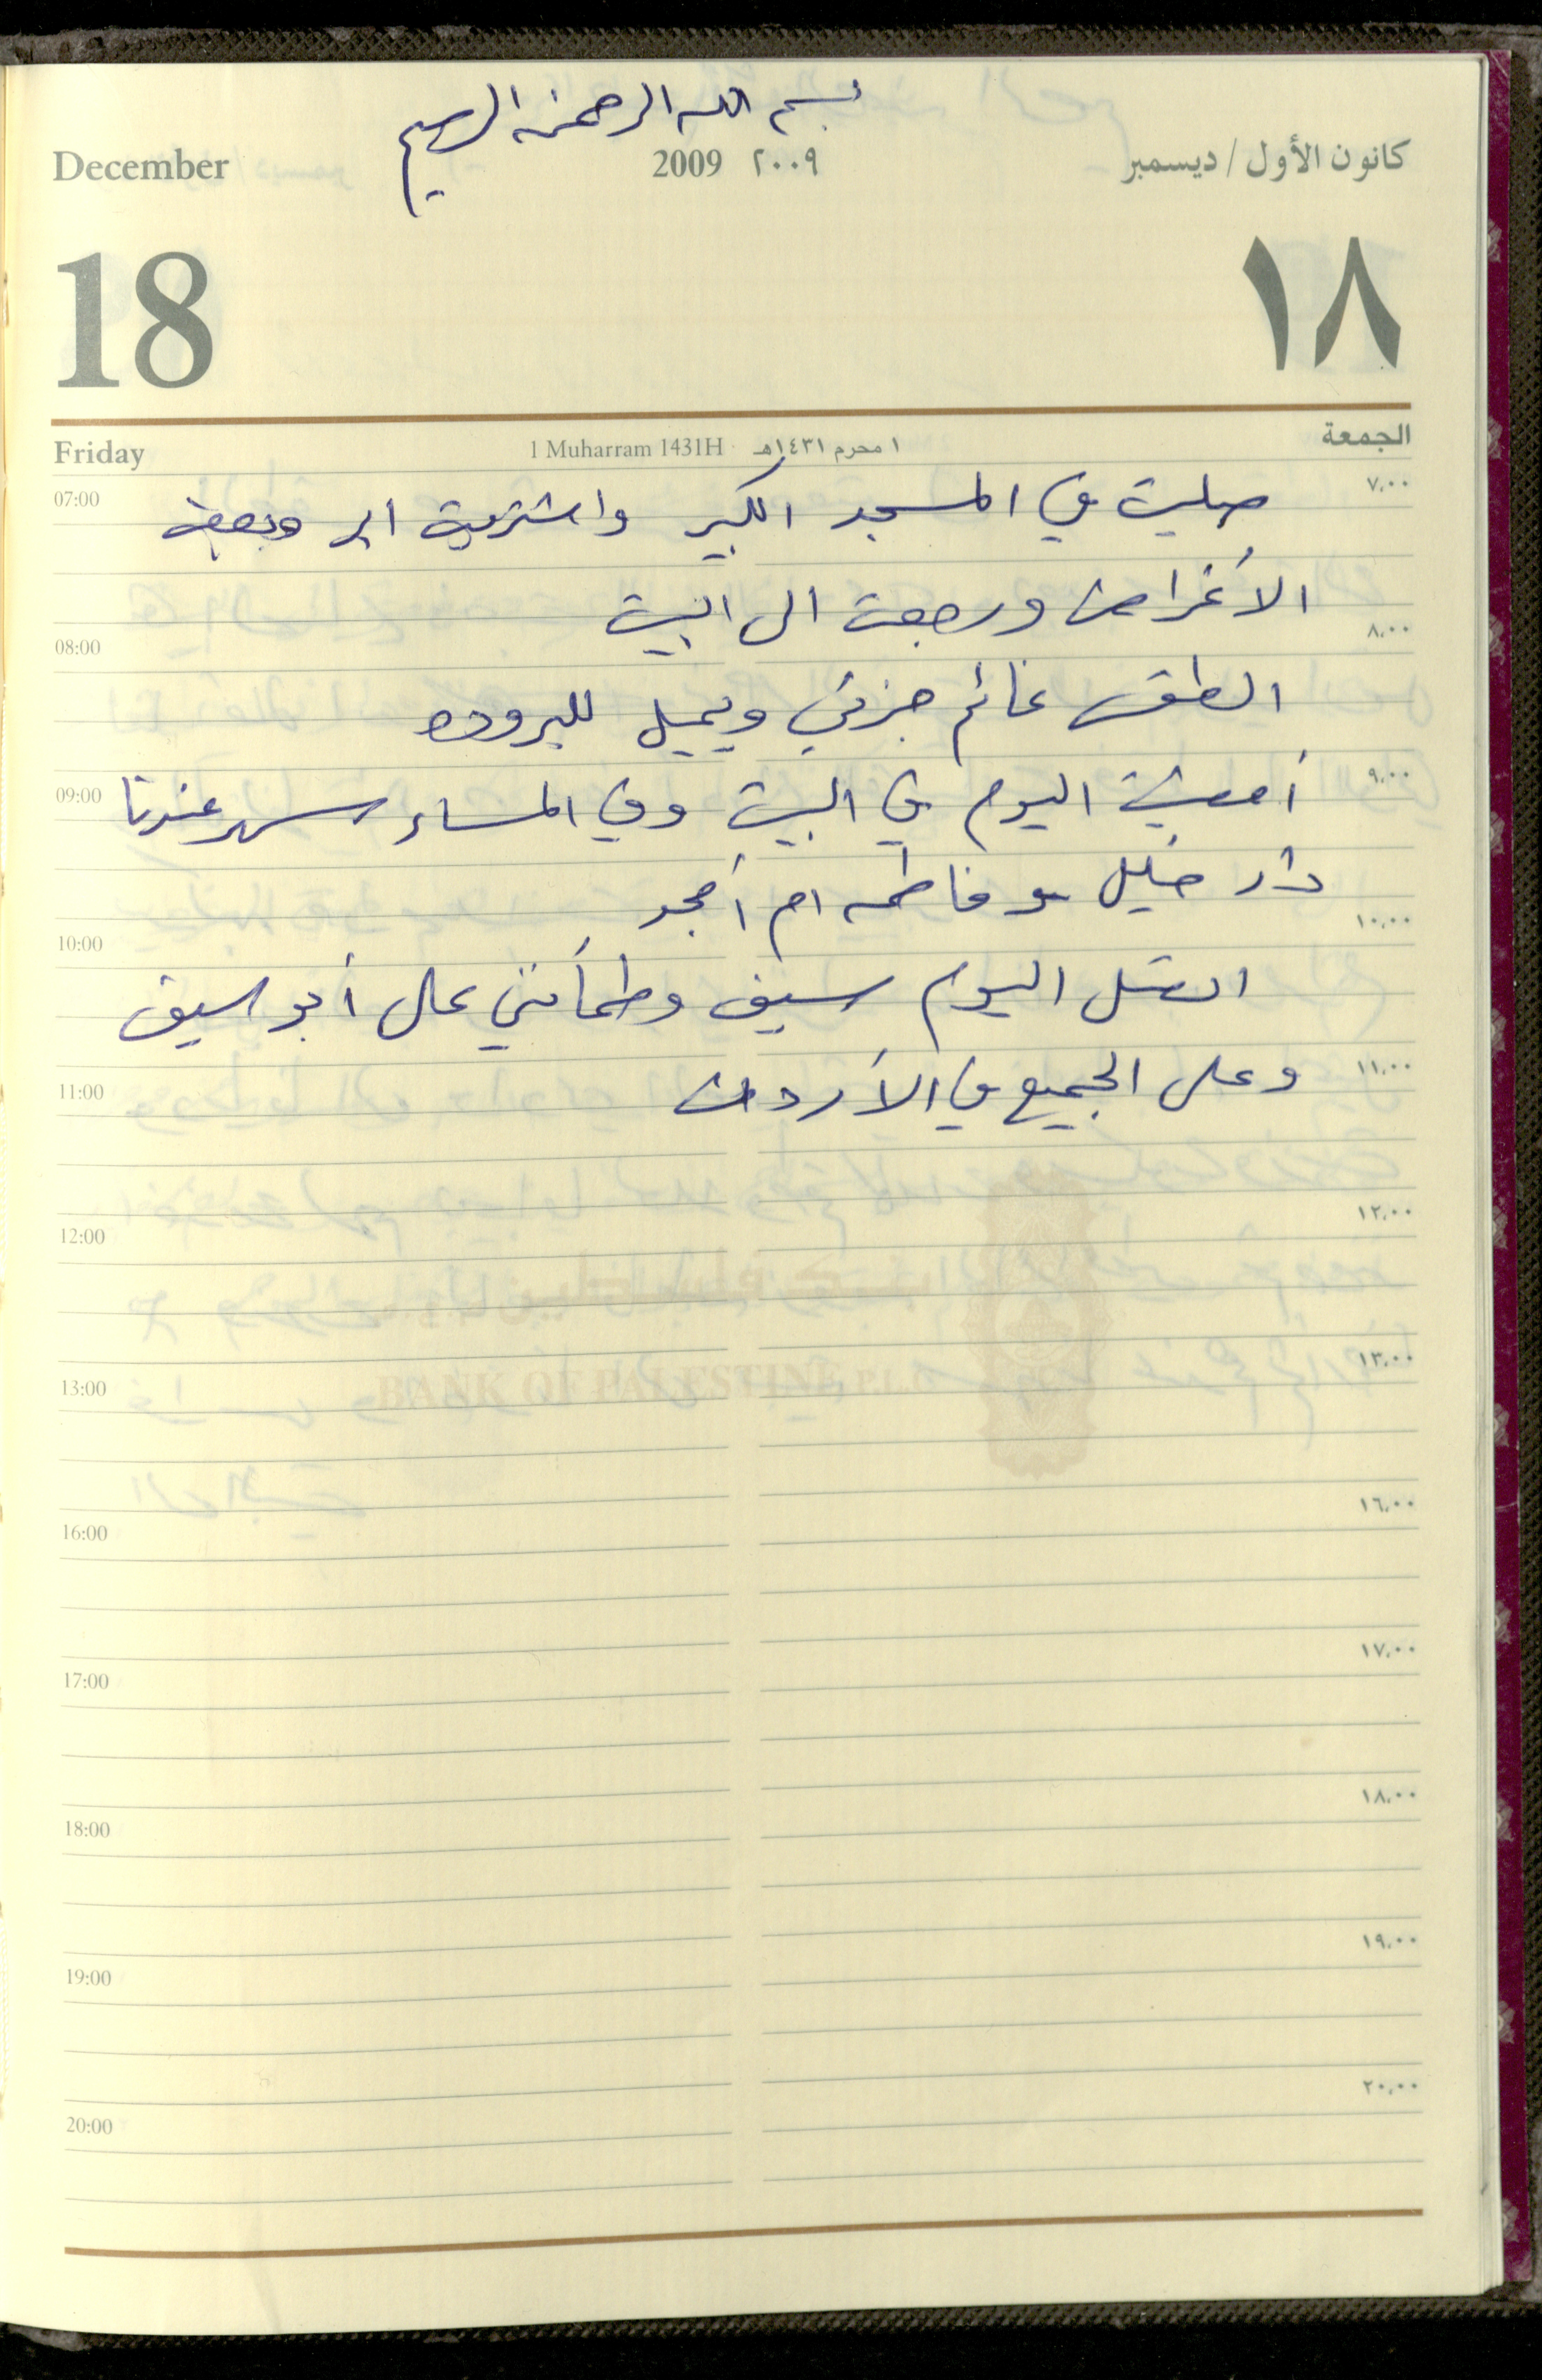 بسم الله الرحمن الرحيم
December 2009 ٢٠٠٩ كانون الأول / ديسمبر
18 ١٨
Friday 1 Muharram 1431H ١ محرم ١٤٣١هـ الجمعة
07:00 ٧,٠٠
صليت في المسجد الكبير واشتريت وبعض
الأغراض ورجعت الى البيت
08:00 ٨,٠٠
الطقس غائم جزئي ويميل للبروده
09:00 ٩,٠٠
أمضيت اليوم في البيت وفي المساء سهر عندنا
دار خليل و فاطمه ام أمجد
10:00 ١٠,٠٠
اتصل اليوم سيف وطمأنني على أبو سيف
11:00 ١١,٠٠
وعلى الجميع في الأردن
12:00 ١٢,٠٠
13:00 ١٣,٠٠
BANK OF PALESTINE P.L.C
16:00 ١٦,٠٠
17:00 ١٧,٠٠
18:00 ١٨,٠٠
19:00 ١٩,٠٠
20:00 ٢٠,٠٠